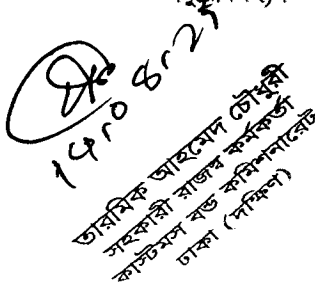 14.08.25
তারমিক আহমেদ চৌধুরী
সহকারী রাজস্ব কর্মকর্তা
কাস্টমস বন্ড কমিশনারেট
ঢাকা (দক্ষিণ)